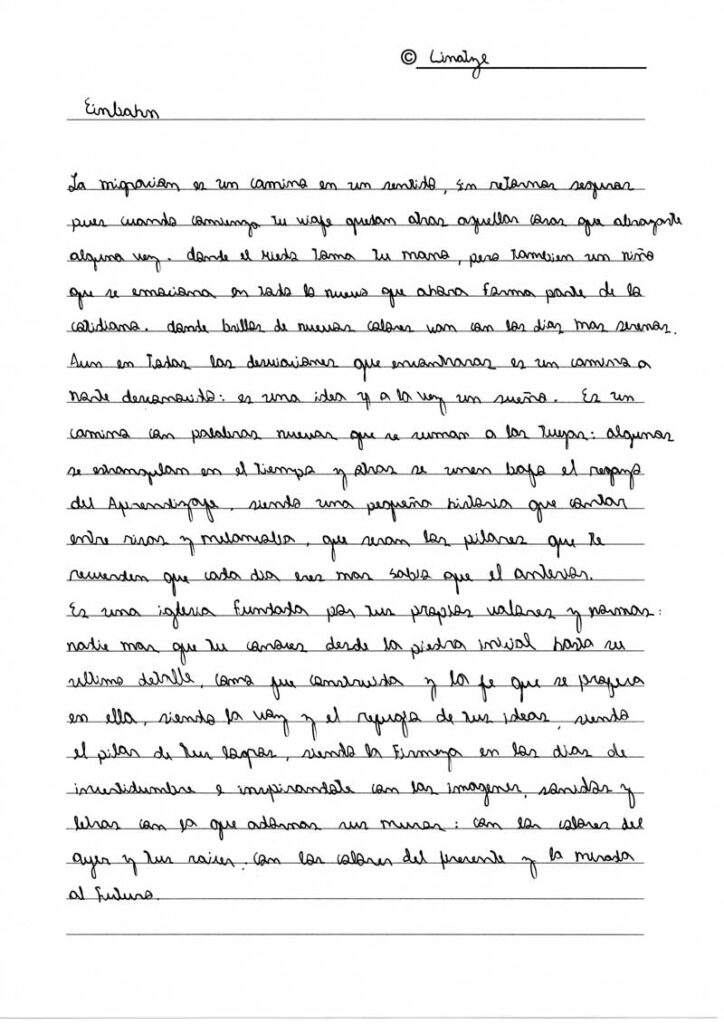 © Linatze
Einbahn
La migracion es un camino en un sentido, sin retornos seguros
pues cuando comienza tu viaje quedan atras aquellas cosas que abrazaste
alguna vez. donde el miedo toma tu mano, pero tambien un niño
que se emociona en todo lo nuevo que ahora forma parte de lo
cotidiano. donde brillos de nuevos colores van con los dias mas serenos.
Aun en todas las desviaciones que encontraras es un camino a
norte desconocido: es una idea y a la vez un sueño. Es un
camino con palabras nuevas que se suman a las tuyas: algunas
se estrangulan en el tiempo y otras se unen bajo el regazo
del Aprendizaje, siendo una pequeña historia que contar
entre risas y melancolia, que seran los pilares que te
recuerden que cada dia eres mas sabio que el anterior.
Es una iglesia fundada por tus propios valores y normas:
nadie mas que tu conoces desde la piedra inicial hasta su
ultimo detalle, como fue construida y la fe que se profesa
en ella, siendo la voz y el refugio de tus ideas, siendo
el pilar de tus logros, siendo la firmeza en los dias de
incertidumbre e inspirandote con las imagenes, sonidos y
letras con la que adornas sus muros: con los colores del
ayer y tus raices, con los colores del presente y la mirada
al futuro.